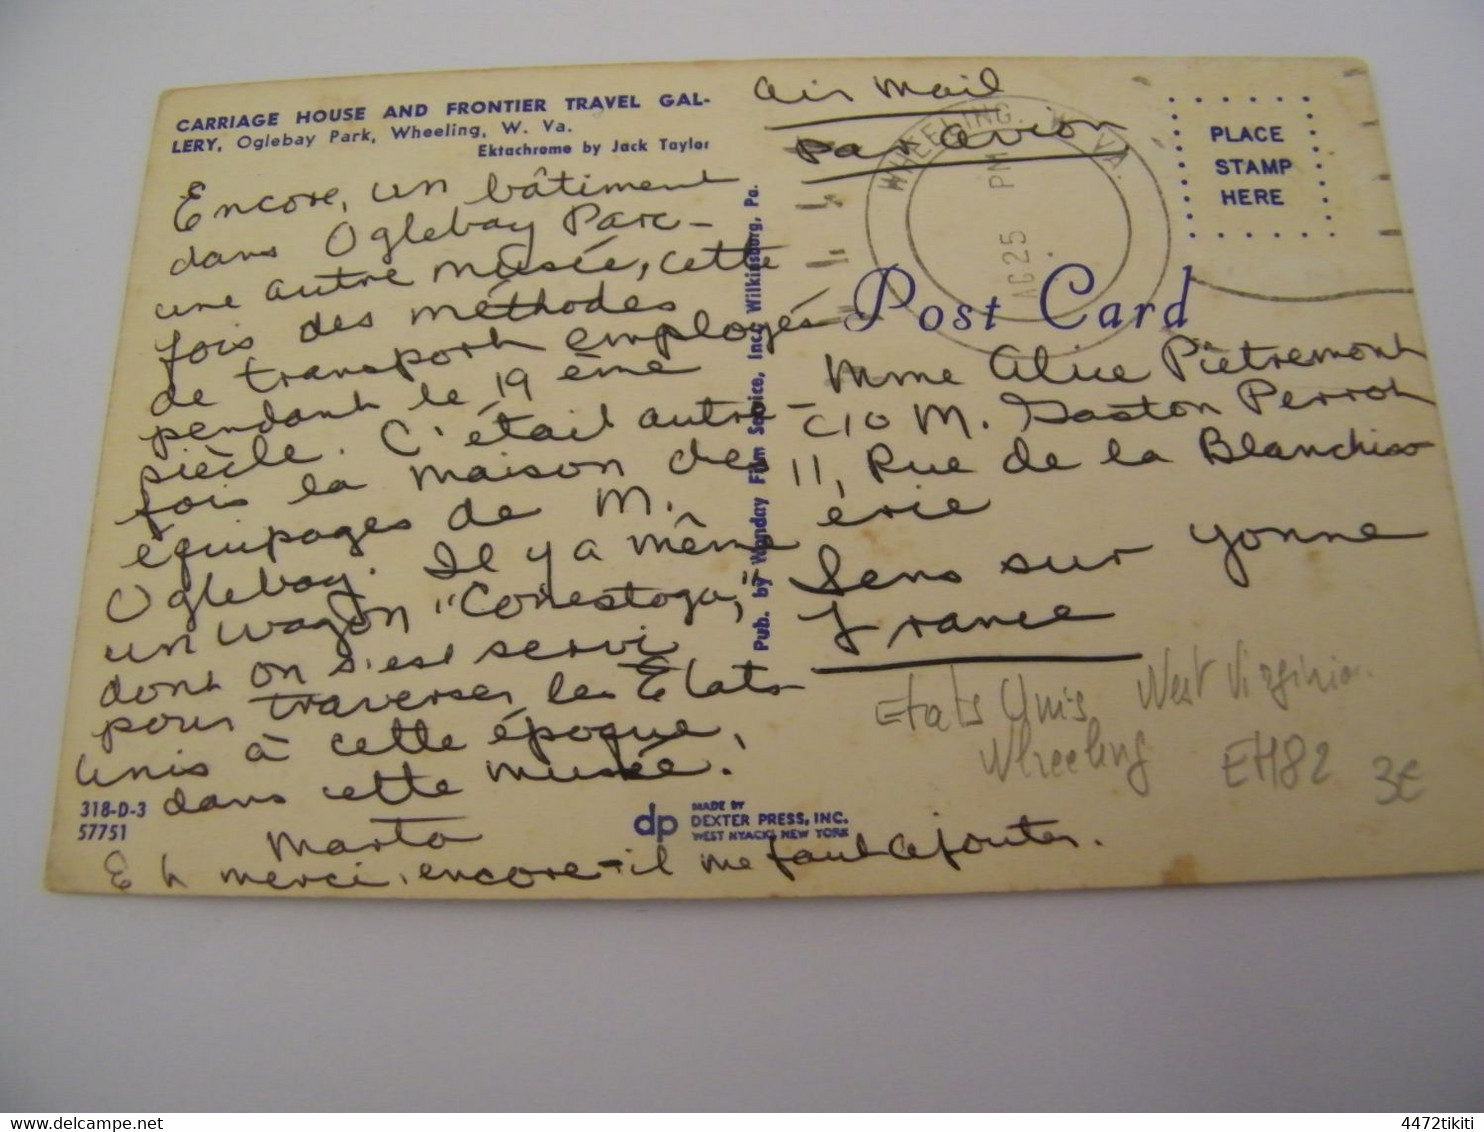 CARRIAGE HOUSE AND FRONTIER TRAVEL GAL-
LERY, Oglebay Park, Wheeling, W. Va.
Ektachrome by Jack Taylor
Encore, un bâtiment
dans Oglebay Parc -
une autre musée, cette
fois des méthodes
de transport employés
pendant le 19 ème
siècle. C'était autre-
fois la maison des
équipages de M.
Oglebay. Il y a même
un wagon "Conestoga,"
dont on s'est servi
pour traverser les Etats
Unis à cette époque,
dans cette musée!
Marta
E h merci, encore - il me faut ajouter.
318-D-3
57751
Pub. by Wonday Film Service, Inc., Wilkinsburg, Pa.
dp MADE BY
DEXTER PRESS, INC.
WEST NYACK, NEW YORK
Air Mail
Par Avion
WHEELING, W. VA.
PM
AG 25
PLACE
STAMP
HERE
Post Card
Mme Alice Piètremont
c/o M. Gaston Perrot
11, Rue de la Blanchiss
érie
Sens sur Yonne
France
Etats Unis West Virginia.
Wheeling
EH82 3€
delcampe.net
4472tikiti